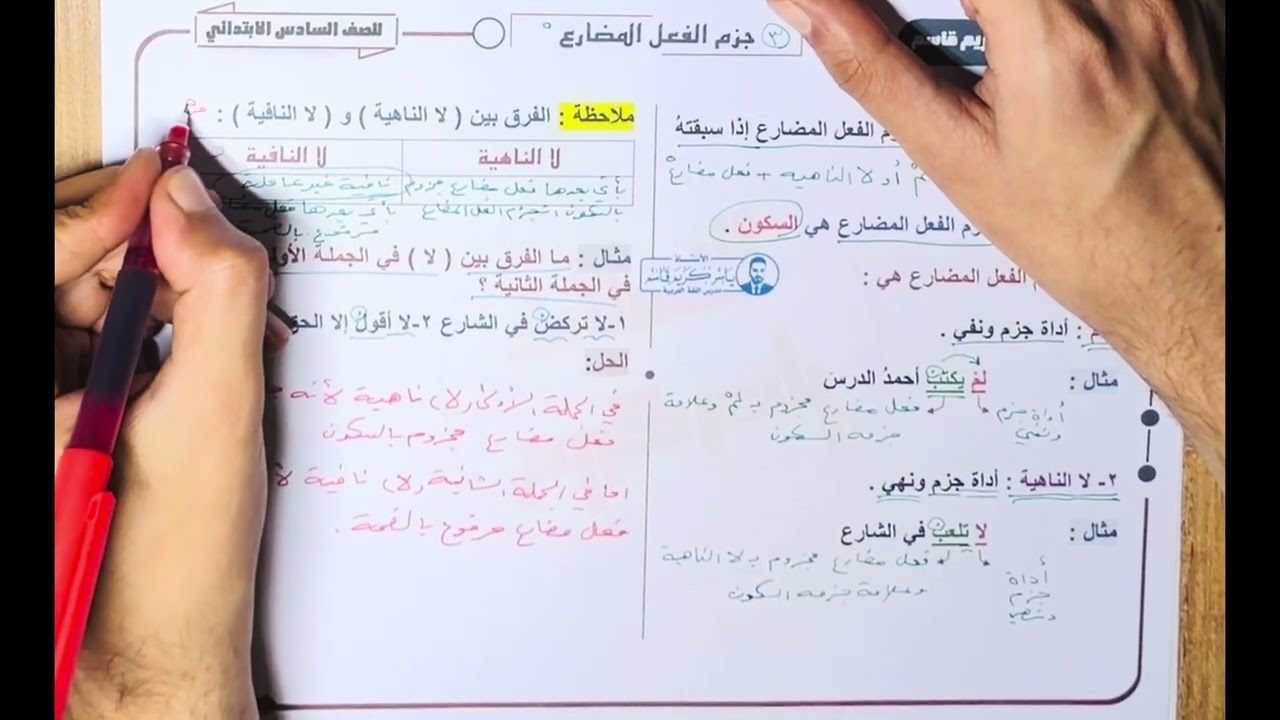 ③ جزم الفعل المضارع
للصف السادس الابتدائي
ريم قاسم
الفعل المضارع إذا سبقتهُ
لا الناهيه + فعل مضارع
الفعل المضارع هي السكون .
الفعل المضارع هي :
: أداة جزم ونفي .
مثال : لمْ يكتبْ أحمدُ الدرسَ
أداة جزم ونفي
فعل مضارع مجزوم بـ لمْ وعلامة
جزمه السكون
٢- لا الناهية : أداة جزم ونهي .
مثال : لا تلعبْ في الشارع
أداة جزم ونهي
فعل مضارع مجزوم بـ لا الناهية
وعلامة جزمه السكون
الأستاذ
ياسر كريم قاسم
مدرس اللغة العربية
ملاحظة : الفرق بين ( لا الناهية ) و ( لا النافية ) :
لا الناهية
لا النافية
يأتي بعدها فعل مضارع مجزوم
بالسكون
نافية غير عاملة
يأتي بعدها فعل
مرفوع بالضمة
مثال : ما الفرق بين ( لا ) في الجملة
في الجملة الثانية ؟
١-لا تركضْ في الشارع ٢-لا أقولُ إلا
الحل:
في الجملة الأولى (لا) ناهية لأنه
فعل مضارع مجزوم بالسكون
اما في الجملة الثانية (لا) نافية
فعل مضارع مرفوع بالضمة .